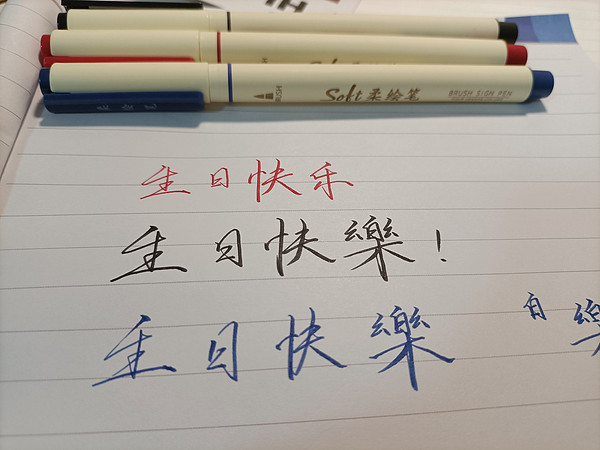 Soft 柔绘笔 BRUSH SIGN PEN
BRUSH
柔绘笔
生日快乐
生日快樂!
生日快樂
自 樂